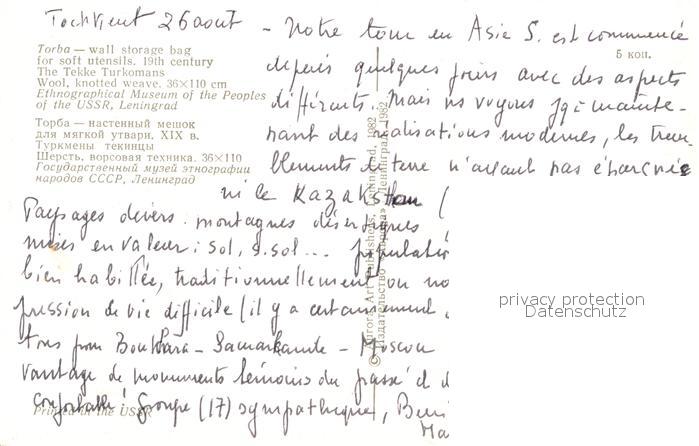 Tachkent 26 août - Notre tour en Asie S. est commencé
depuis quelques jours avec des aspects
différents. Mais ns voyons jqà mainte-
nant des réalisations modernes, les trem-
blements de terre n'ayant pas épargné
ni le Kazakstan (
Paysages divers : montagnes désertiques
mises en valeur : sol, s.sol ... populatio
bien habillée, traditionnellement ou no
pression de vie difficile (il y a certainement
tons pour Boukhara - Samarkande - Moscou
vantage de monuments témoins du passé et d
confortable! Groupe (17) sympathique, 
Torba — wall storage bag
for soft utensils. 19th century
The Tekke Turkomans
Wool, knotted weave. 36×110 cm
Ethnographical Museum of the Peoples
of the USSR, Leningrad
Торба — настенный мешок
для мягкой утвари. XIX в.
Туркмены текинцы
Шерсть, ворсовая техника. 36×110
Государственный музей этнографии
народов СССР, Ленинград
5 коп.
© Aurora Art Publishers, Leningrad, 1982
Издательство «Аврора», Ленинград, 1982
Printed in the USSR
privacy protection
Datenschutz